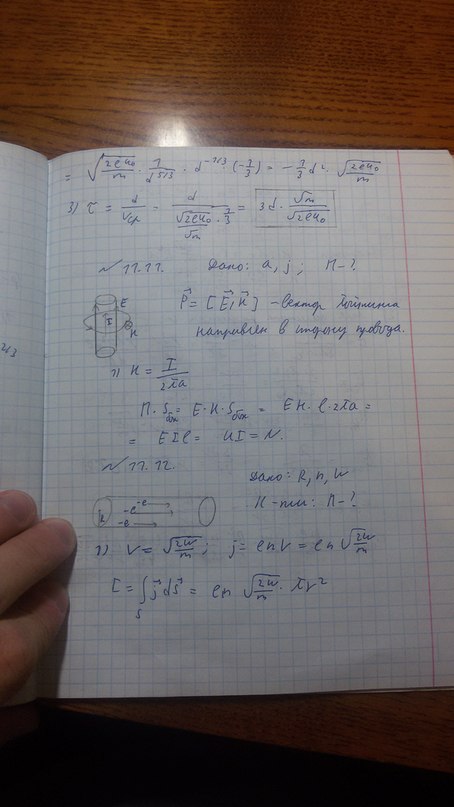 = √(2eU₀/m) · 1/d^(5/3) · d^(-2/3) · (-1/3) = -1/3 d² · √(2eU₀/m)
3) τ = d/Vср = d/(√(2eU₀)/√m · 1/3) = 3d · √m/√(2eU₀)
№ 11.11. Дано: a, j; П-?
P⃗ = [E⃗, H⃗] - вектор Пойтинга
направлен в сторону провода.
E
I
H
1) H = I/(2πa)
П·Sбок = E·H·Sбок = EH·l·2πa =
= EIl = UI = N.
№ 11.12. Дано: R, n, W
Н-ти: П-?
R
-e
-e
-e
1) V = √(2W/m); j = enV = en√(2W/m)
I = ∫ₛ j⃗ dS⃗ = en √(2W/m) · πr²